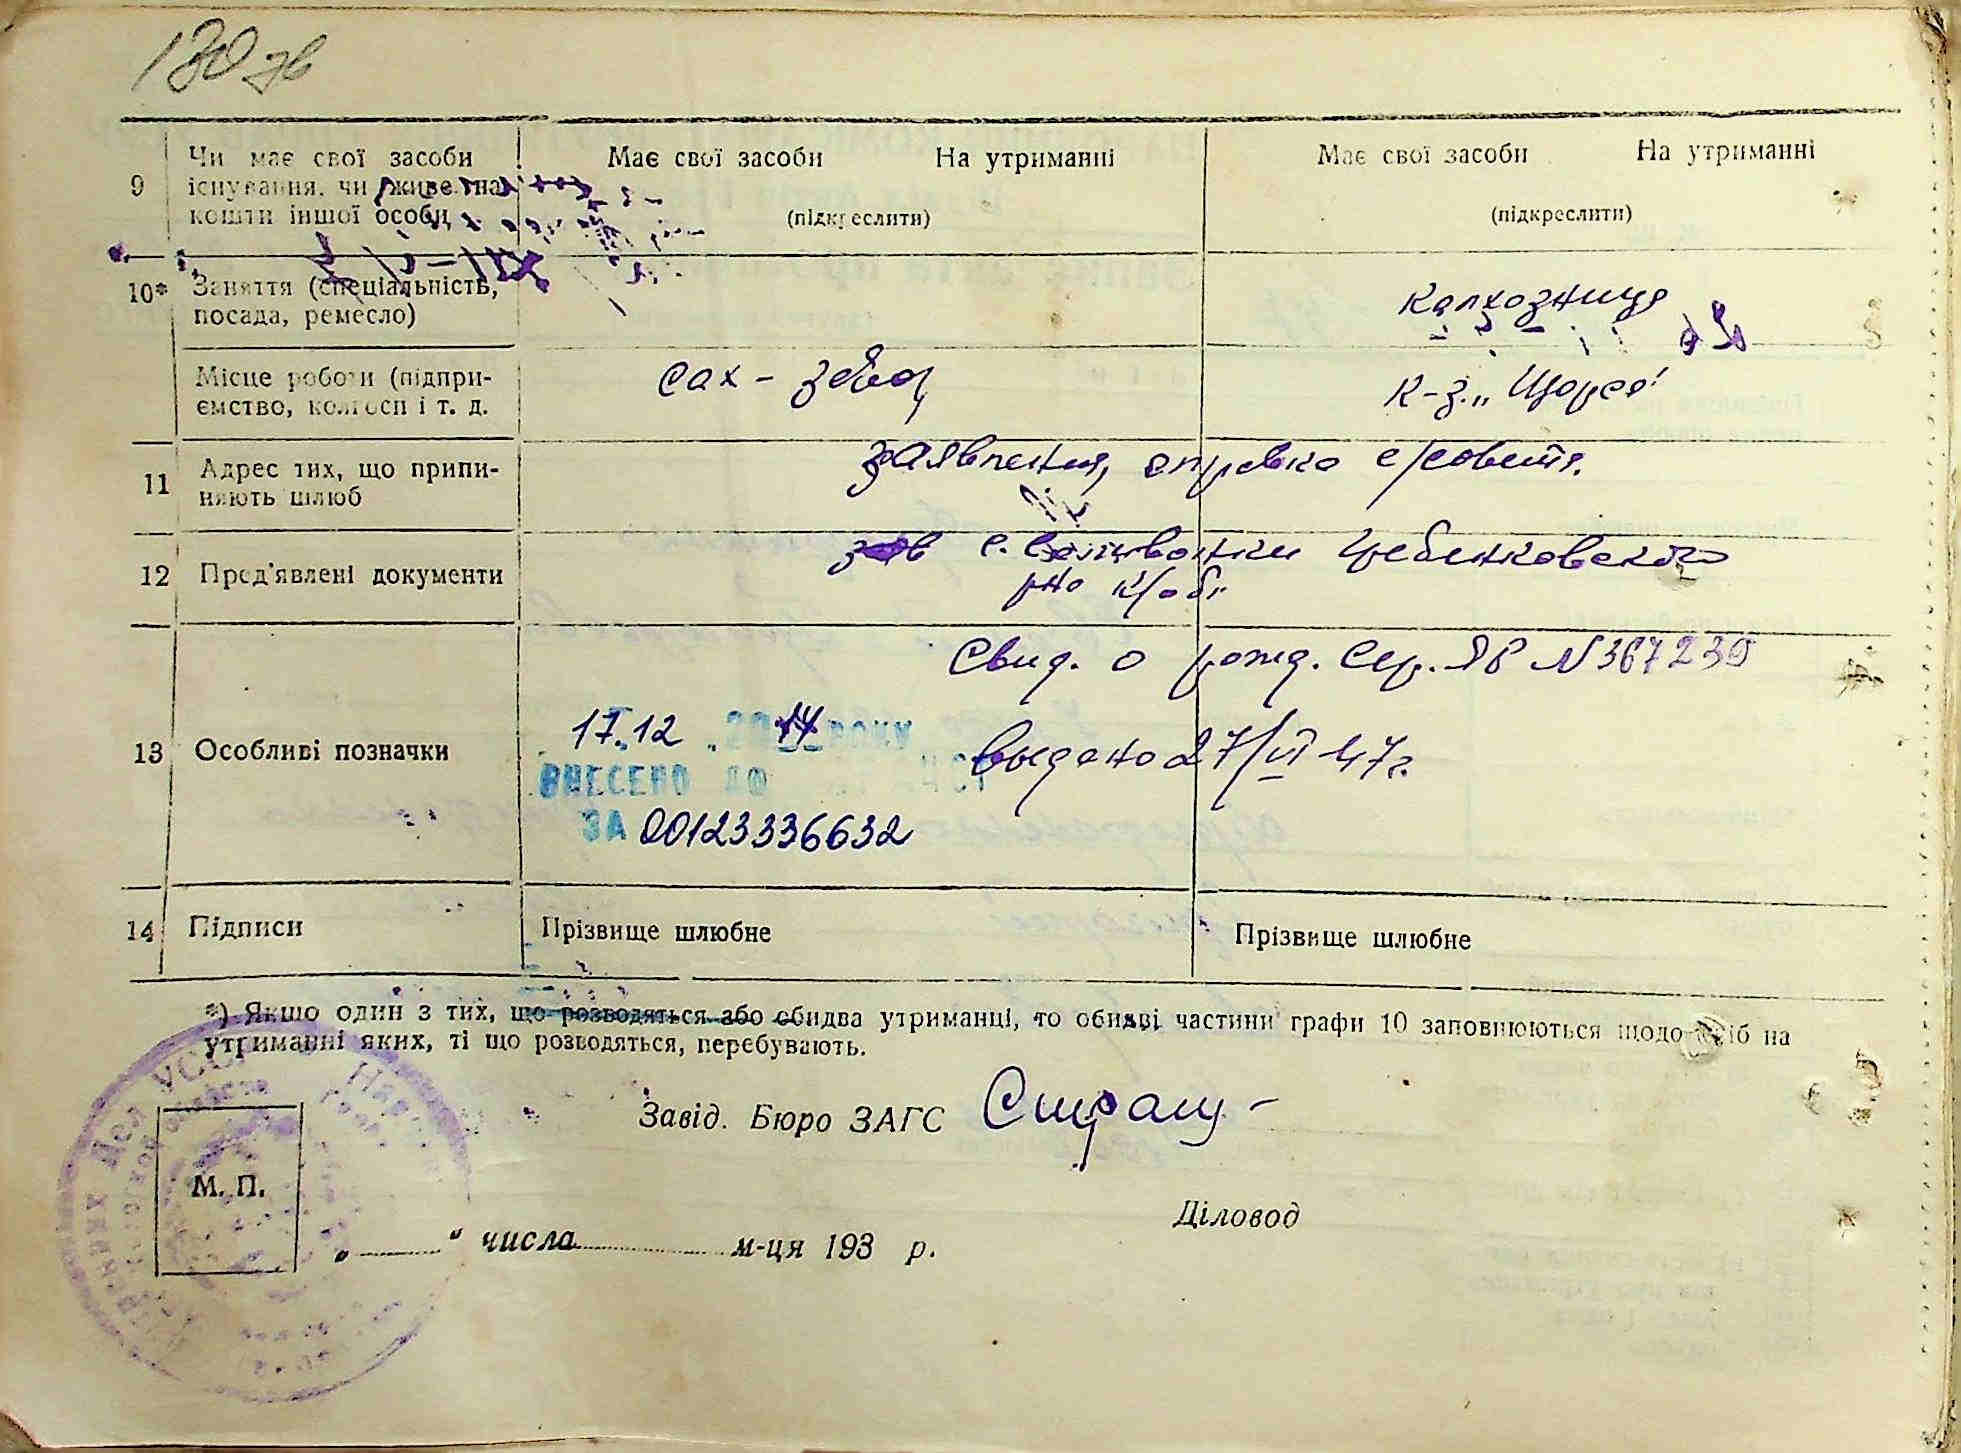 130 зв
9 Чи має свої засоби існування, чи живе на кошти іншої особи
Має свої засоби На утриманні
(підкреслити)
Має свої засоби На утриманні
(підкреслити)
10* Заняття (спеціальність, посада, ремесло)
колхозница
Місце роботи (підпри-
ємство, колгосп і т. д.
сах-завод
к-з „Щорса"
11 Адрес тих, що припи-
няють шлюб
заявления, справка с/совета
12 Пред'явлені документи
с.
Свид. о рожд. Сер. ЯР N 367239
13 Особливі позначки
17.12.2014 РОКУ
выдано 27/VI 47г.
ВНЕСЕНО ДО
ЗА 00123336632
14 Підписи
Прізвище шлюбне
Прізвище шлюбне
*) Якшо один з тих, що розводяться або обидва утриманці, то обидві частини графи 10 заповнюються щодо осіб на
утриманні яких, ті що розводяться, перебувають.
Завід. Бюро ЗАГС
М. П.
Діловод
„ " числа м-ця 193 р.